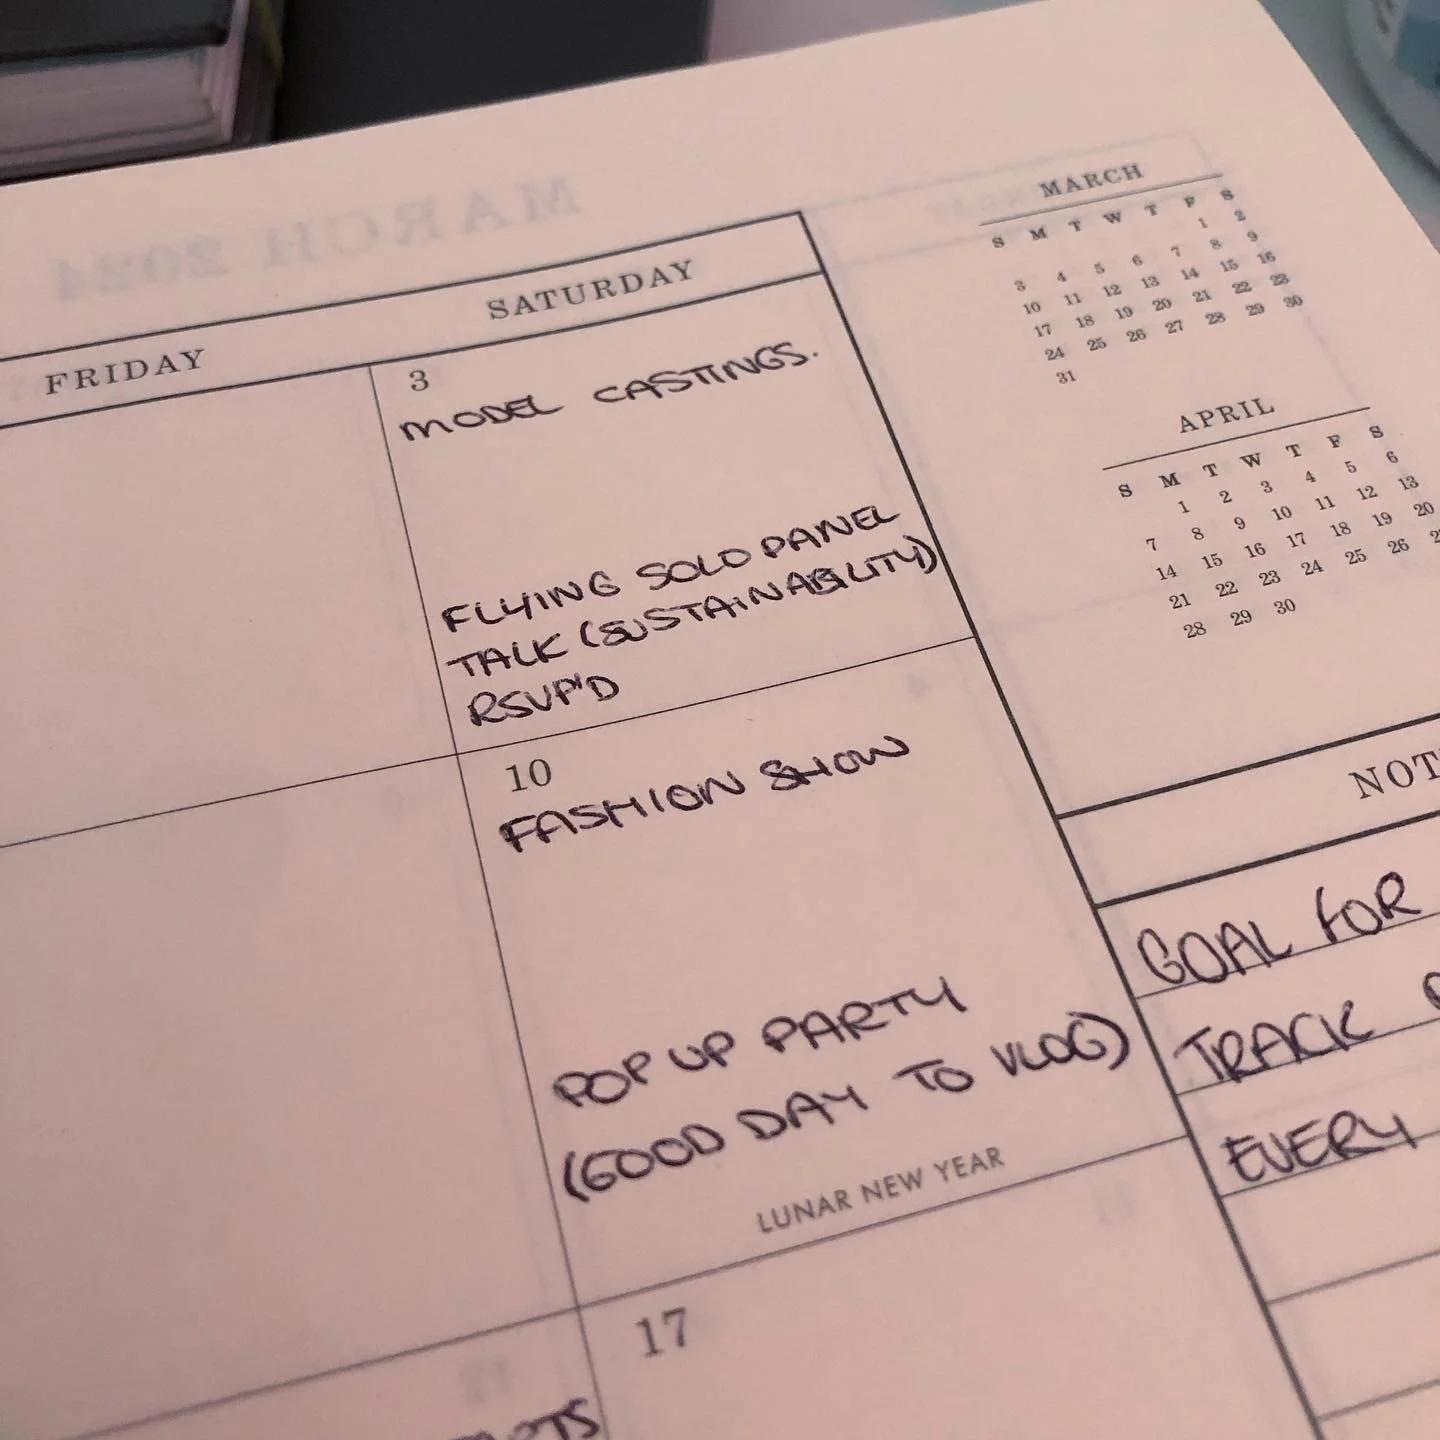 MARCH 2024
FRIDAY
SATURDAY
3
MODEL CASTINGS.
FLYING SOLO PANEL
TALK (SUSTAINABILITY)
RSVP'D
10
FASHION SHOW
POP UP PARTY
(GOOD DAY TO VLOG)
LUNAR NEW YEAR
17
MARCH
S M T W T F S
1 2
3 4 5 6 7 8 9
10 11 12 13 14 15 16
17 18 19 20 21 22 23
24 25 26 27 28 29 30
31
APRIL
S M T W T F S
1 2 3 4 5 6
7 8 9 10 11 12 13
14 15 16 17 18 19 20
21 22 23 24 25 26
28 29 30
GOAL FOR
TRACK
EVERY